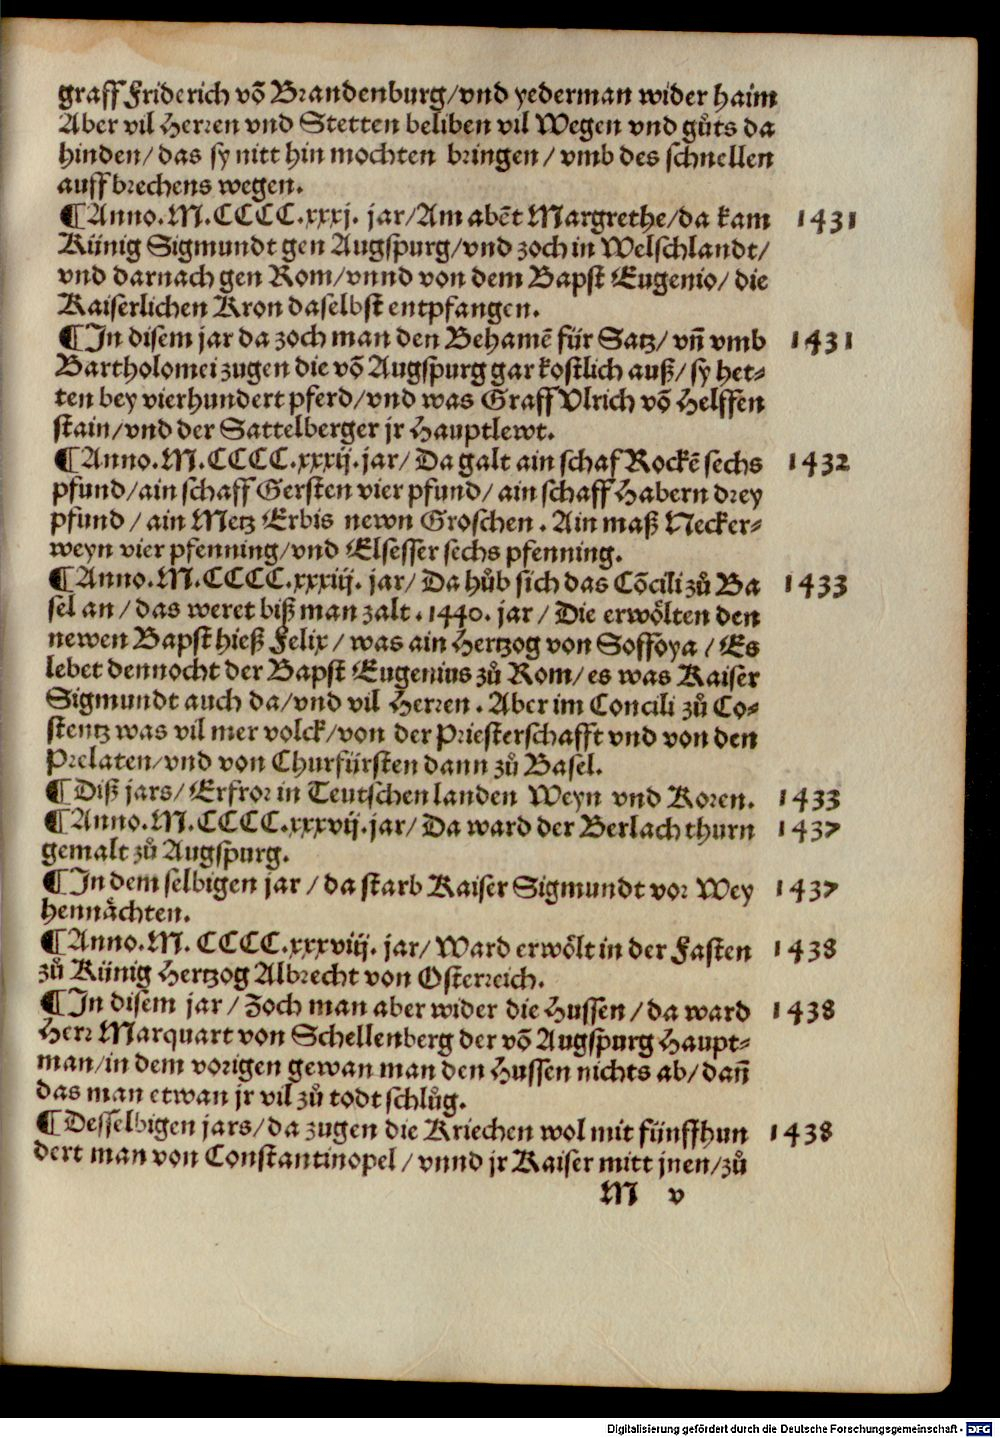 graff Friderich vō Brandenburg/vnd yederman wider haim
Aber vil Herren vnd Stetten beliben vil Wegen vnd gůts da
hinden/das sy nitt hin mochten bringen/vmb des schnellen
auffbrechens wegen.
¶Anno.M.CCCC.xxxj. jar/Am abēt Margrethe/da kam 1431
Künig Sigmundt gen Augspurg/vnd zoch in Welschlandt/
vnd darnach gen Rom/vnnd von dem Bapst Eugenio/die
Kaiserlichen Kron daselbst entpfangen.
¶In disem jar da zoch man den Behamē für Satz/vn̄ vmb 1431
Bartholomei zugen die vō Augspurg gar kostlich auß/sy het-
ten bey vierhundert pferd/vnd was Graff Vlrich vō Helffen
stain/vnd der Sattelberger jr Hauptlewt.
¶Anno.M.CCCC.xxxij.jar/Da galt ain schaf Rockē sechs 1432
pfund/ain schaff Gersten vier pfund/ain schaff Habern drey
pfund/ain Metz Erbis newn Groschen. Ain maß Necker-
weyn vier pfenning/vnd Elsesser sechs pfenning.
¶Anno.M.CCCC.xxxiij. jar/Da hůb sich das Cōcili zů Ba 1433
sel an/das weret biß man zalt.1440. jar/Die erwölten den
newen Bapst hieß Felix/was ain Hertzog von Soffoya/Es
lebet dennocht der Bapst Eugenius zů Rom/es was Kaiser
Sigmundt auch da/vnd vil Herren. Aber im Concili zů Co-
stentz was vil mer volck/von der Priesterschafft vnd von den
Prelaten/vnd von Churfürsten dann zů Basel.
¶Diß jars/Erfror in Teutschen landen Weyn vnd Koren. 1433
¶Anno.M.CCCC.xxxvij.jar/Da ward der Berlach thurn 1437
gemalt zů Augspurg.
¶In dem selbigen jar/da starb Kaiser Sigmundt vor Wey 1437
hennächten.
¶Anno.M. CCCC.xxxviij. jar/Ward erwölt in der Fasten 1438
zů Künig Hertzog Albrecht von Osterreich.
¶In disem jar/Zoch man aber wider die Hussen/da ward 1438
Herr Marquart von Schellenberg der vō Augspurg Haupt-
man/in dem vorigen gewan man den Hussen nichts ab/dan̄
das man etwan jr vil zů todt schlůg.
¶Desselbigen jars/da zugen die Kriechen wol mit fünffhun 1438
dert man von Constantinopel/vnnd jr Kaiser mitt jnen/zů
M v
Digitalisierung gefördert durch die Deutsche Forschungsgemeinschaft - DFG